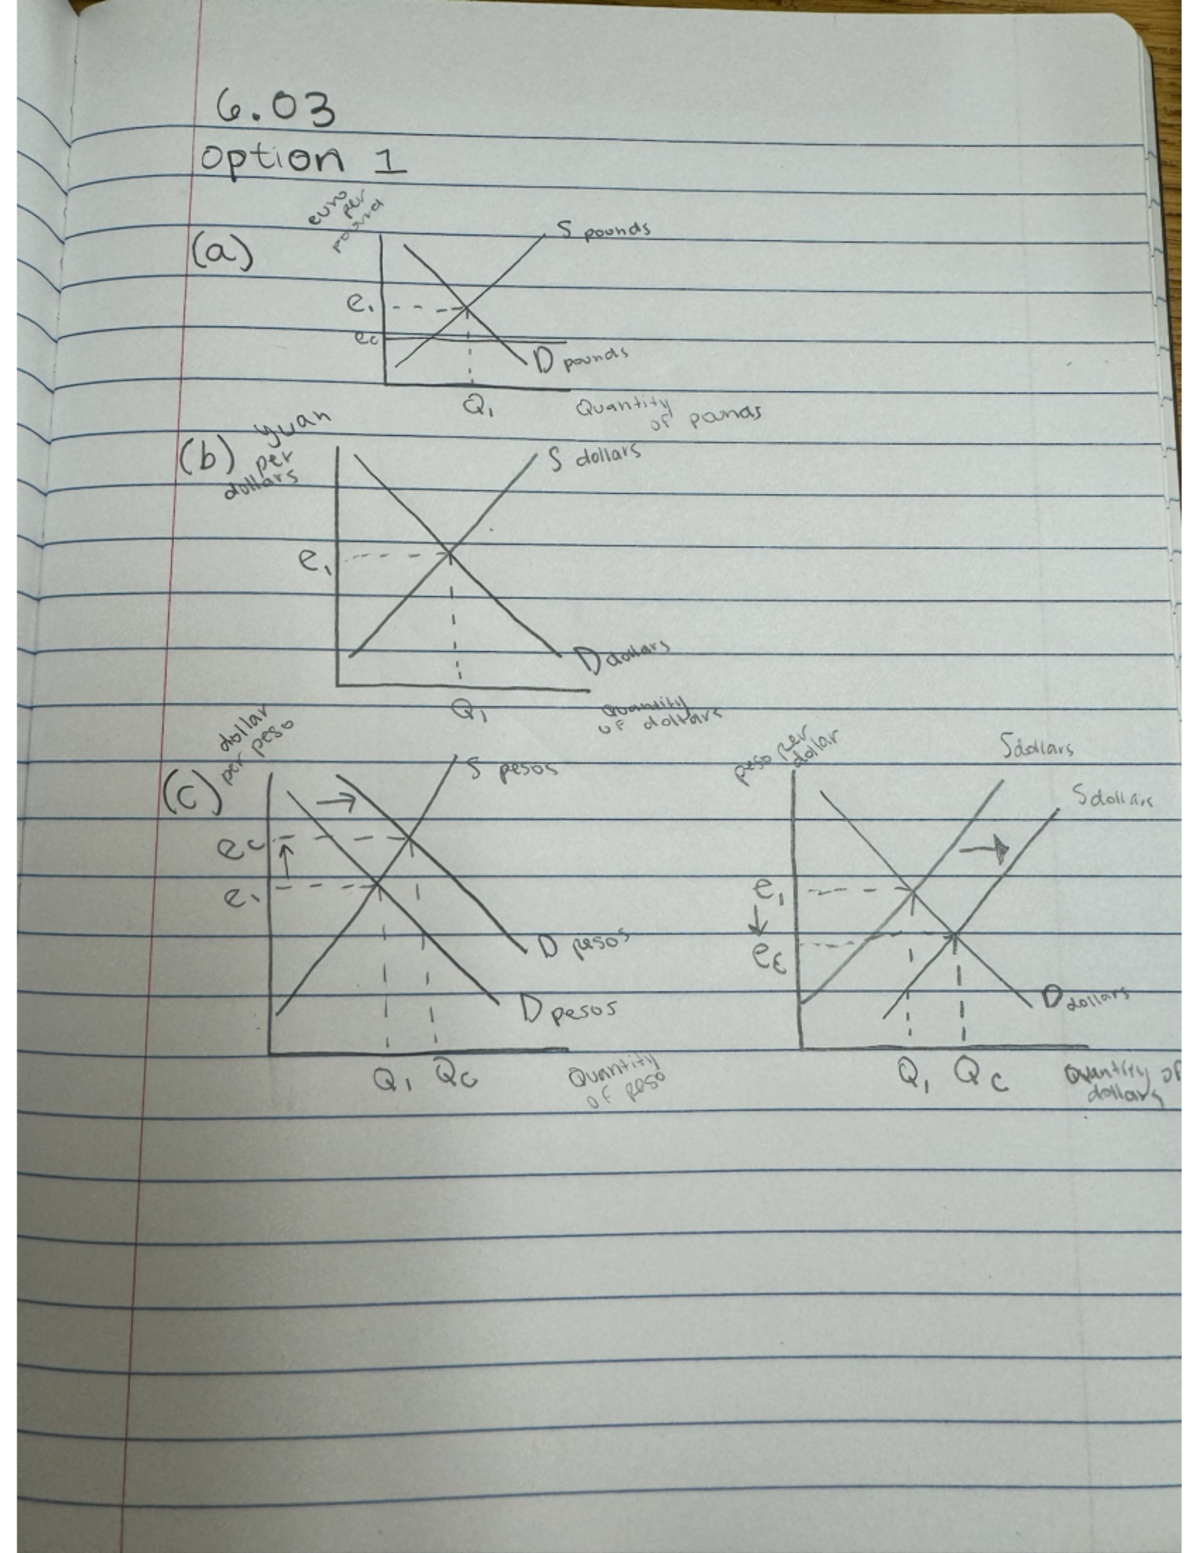 6.03
option 1
(a)
euro
per
pound
S pounds
e₁
ec
D pounds
Q₁
Quantity
of pounds
(b)
yuan
per
dollars
S dollars
e₁
D dollars
Q₁
Quantity
of dollars
(c)
dollar
per peso
S pesos
ec
e₁
D pesos
D pesos
Q₁ Qc
Quantity
of peso
peso per
dollar
S dollars
S dollars
e₁
ec
D dollars
Q₁ Qc
Quantity of
dollars